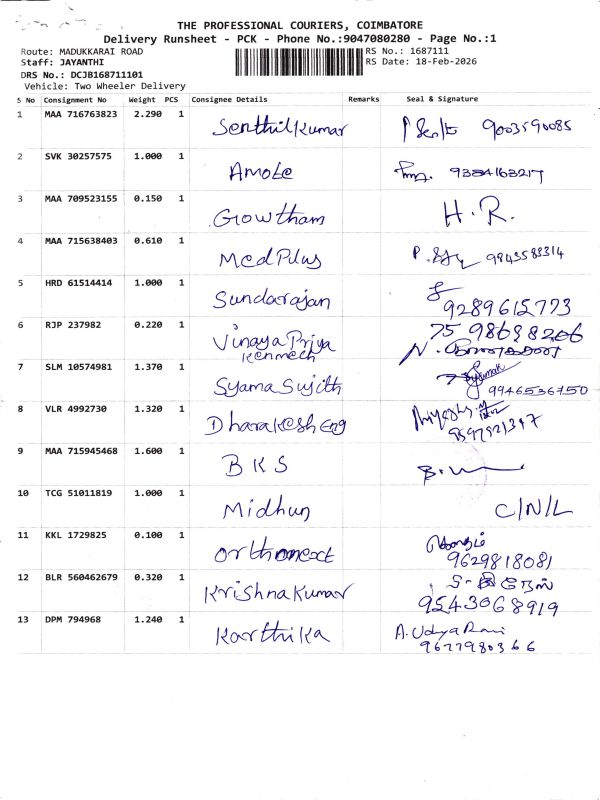 THE PROFESSIONAL COURIERS, COIMBATORE
Delivery Runsheet - PCK - Phone No.:9047080280 - Page No.:1
Route: MADUKKARAI ROAD RS No.: 1687111
Staff: JAYANTHI RS Date: 18-Feb-2026
DRS No.: DCJB168711101
Vehicle: Two Wheeler Delivery
S No Consignment No Weight PCS Consignee Details Remarks Seal & Signature
1 MAA 716763823 2.290 1 Senthilkumar 9003590085
2 SVK 30257575 1.000 1 Amote 9384163217
3 MAA 709523155 0.150 1 Gowtham H.R.
4 MAA 715638403 0.610 1 MedPlus 9943583314
5 HRD 61514414 1.000 1 Sundarajan
9289615773
6 RJP 237982 0.220 1 Vinaya Priya 7598698266
7 SLM 10574981 1.370 1 Syama Sujith
9946536750
8 VLR 4992730 1.320 1 Dharakesh Eng
9597921347
9 MAA 715945468 1.600 1 BKS
10 TCG 51011819 1.000 1 Midhun C/N/L
11 KKL 1729825 0.100 1 Orthonext
9629818081
12 BLR 560462679 0.320 1 Krishnakumar
9543068919
13 DPM 794968 1.240 1 Karthika A. Udya Rani
9677980366